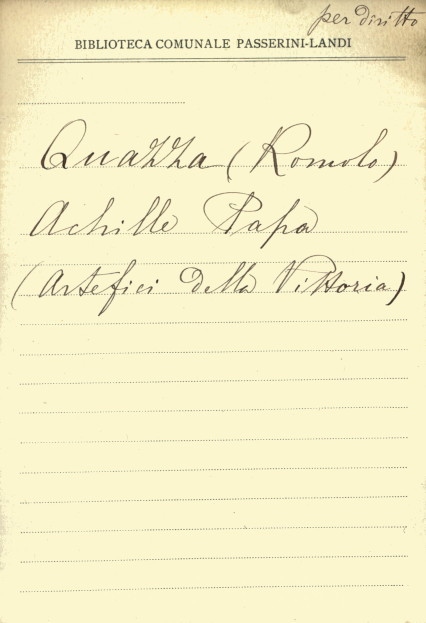 per diritto
BIBLIOTECA COMUNALE PASSERINI-LANDI
Quazza (Romolo)
Achille Papa
(Artefici della Vittoria)